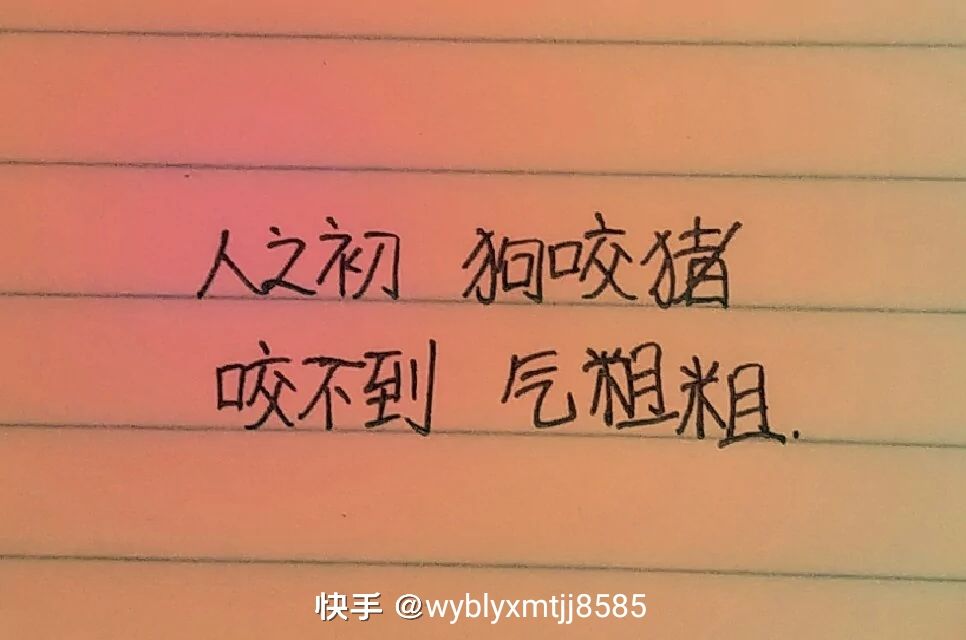 人之初 狗咬猪
咬不到 气粗粗.
快手 @wyblyxmtjj8585